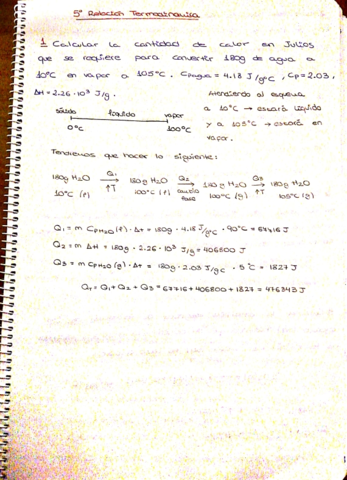 5ª Relación Termoquímica
1 Calcular la cantidad de calor en Julios
que se requiere para convertir 180g de agua a
10ºC en vapor a 105ºC. Cpagua = 4.18 J/gºC, Cp = 2.03,
ΔH = 2.26·10³ J/g.
Atendiendo al esquema
a 10ºC → estará líquido
y a 105ºC → estará en
vapor.
sólido líquido vapor
0ºC 100ºC
Tendremos que hacer lo siguiente:
180g H2O Q1 → 180g H2O Q2 → 180g H2O Q3 → 180g H2O
10ºC (l) ↑T 100ºC (l) cambio fase 100ºC (g) ↑T 105ºC (g)
Q1 = m CpH2O(l) · Δt = 180g · 4.18 J/gºC · 90ºC = 67716 J
Q2 = m ΔH = 180g · 2.26·10³ J/g = 406800 J
Q3 = m CpH2O(g) · Δt = 180g · 2.03 J/gºC · 5ºC = 1827 J
QT = Q1 + Q2 + Q3 = 67716 + 406800 + 1827 = 476343 J